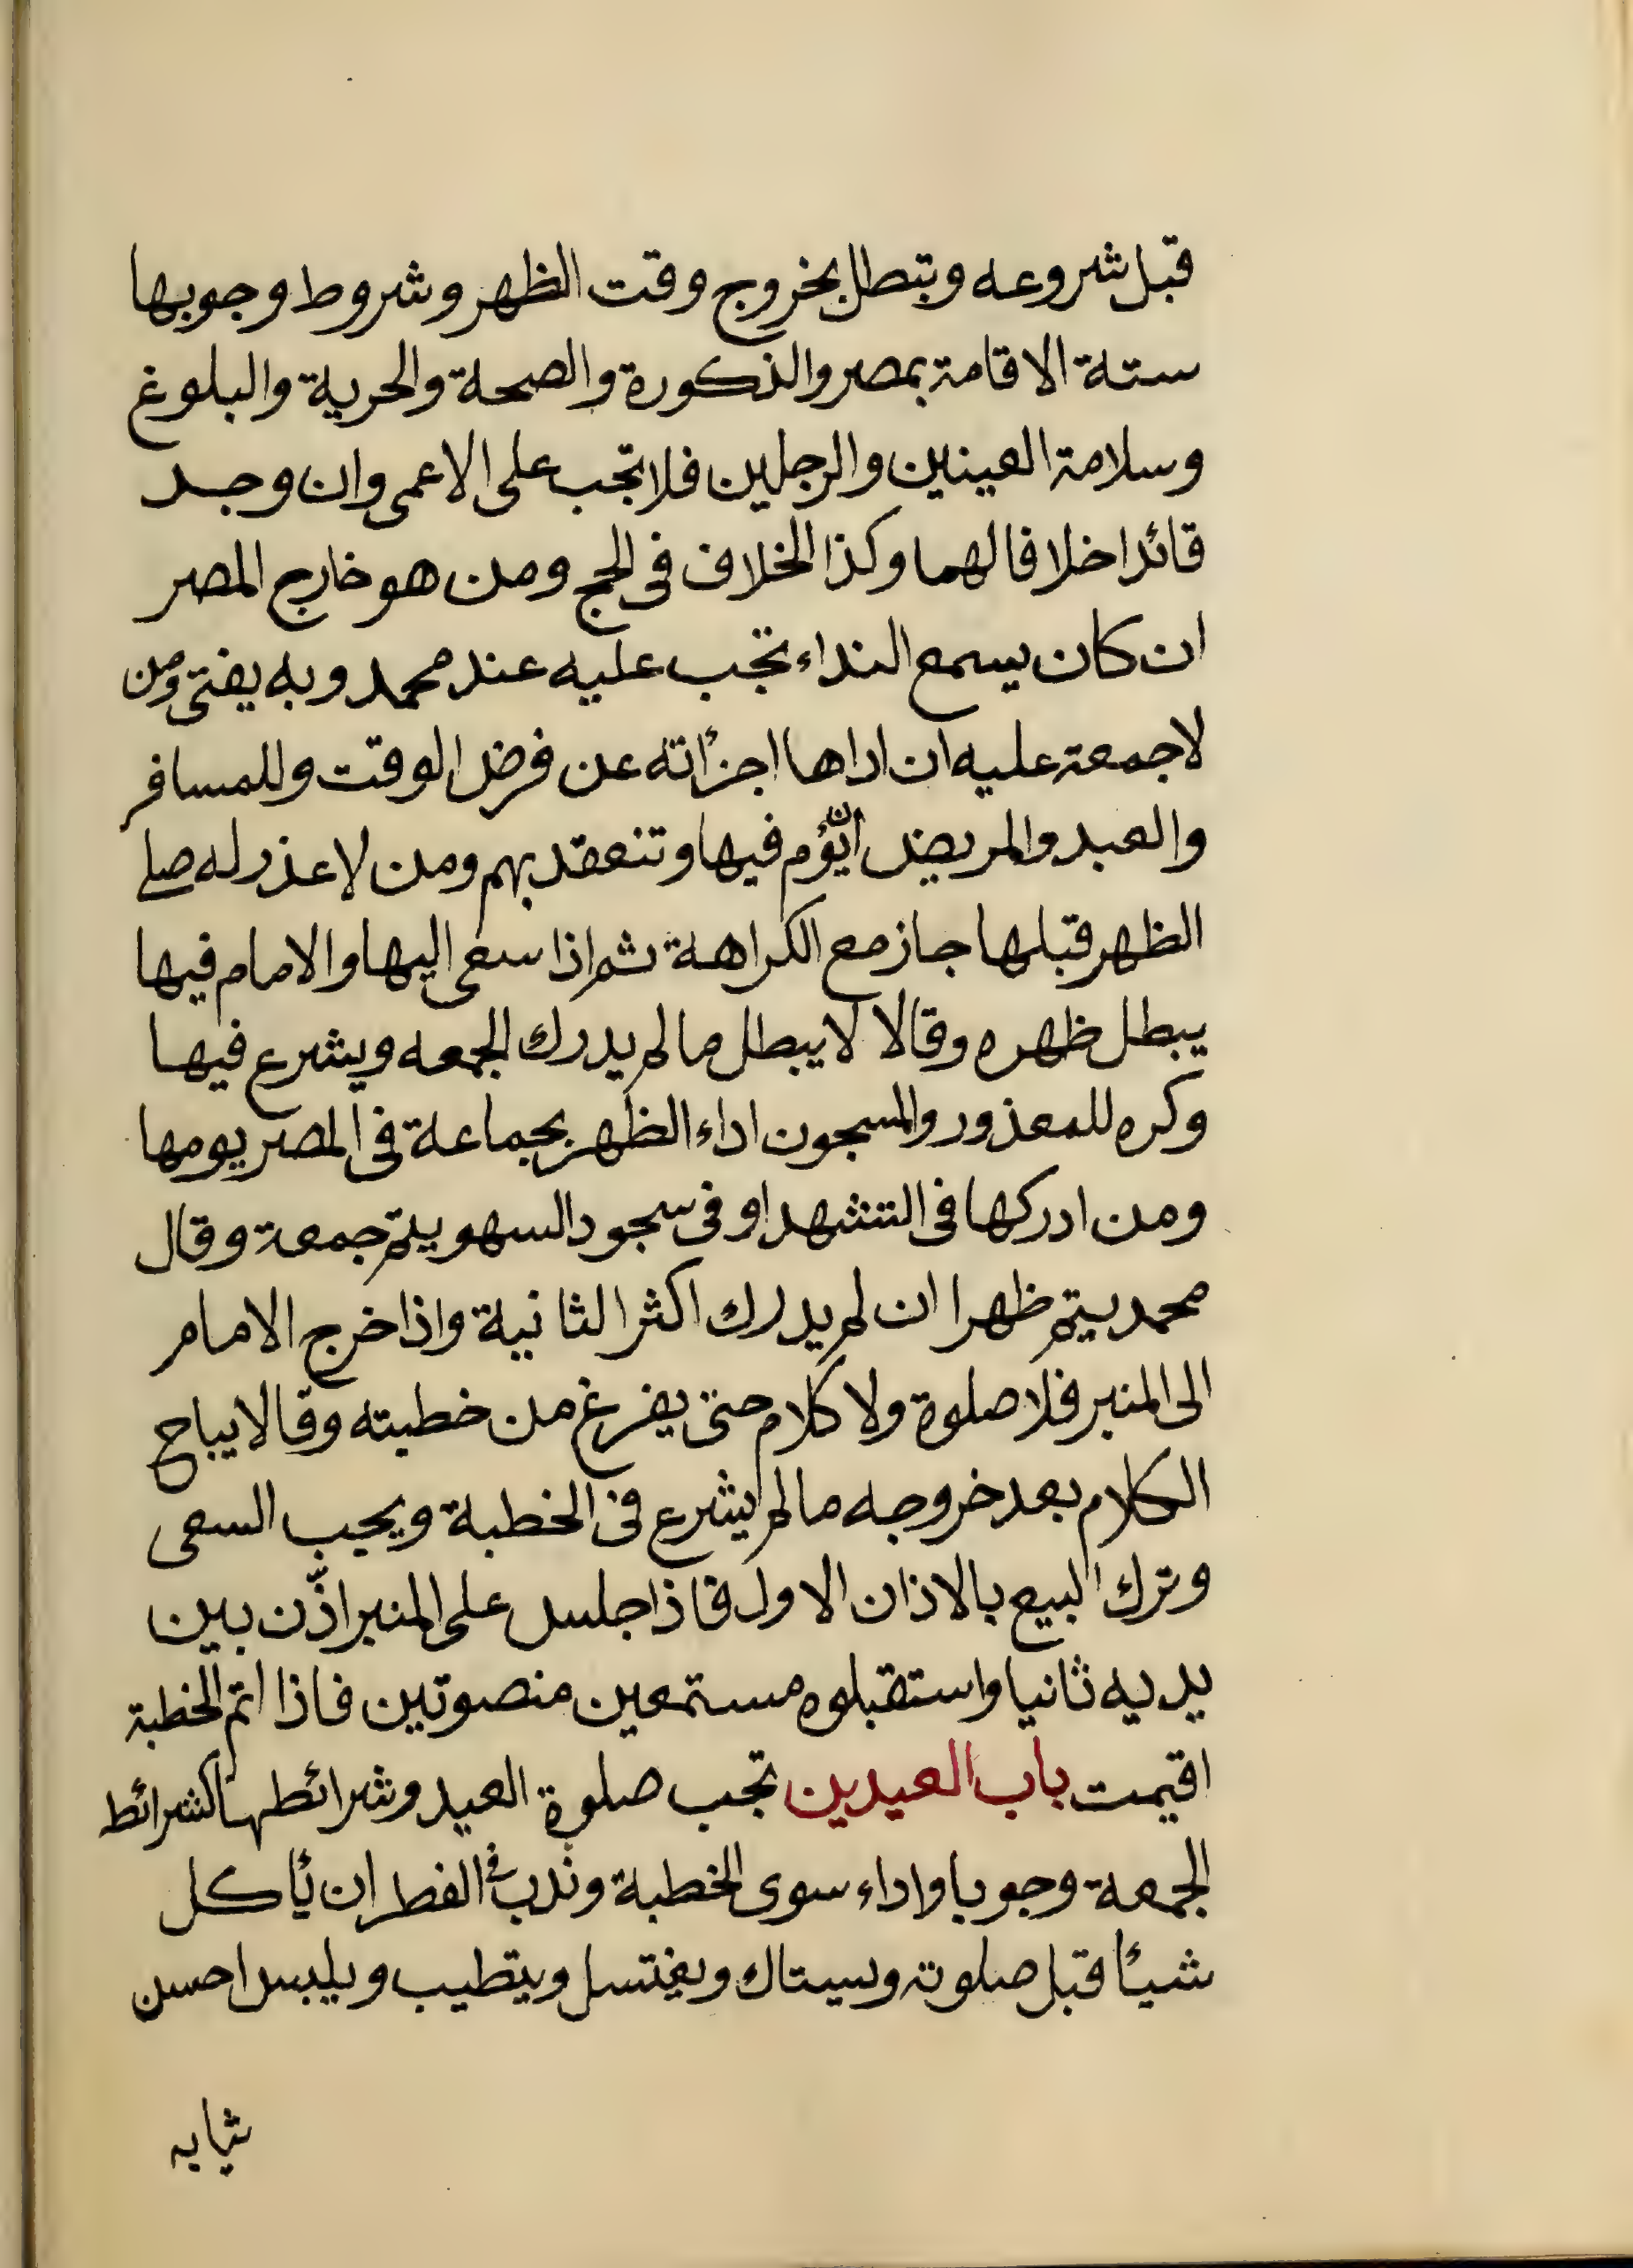 قبل شروعه وبتطل بخروج وقت الظهر وشروط وجوبها
ستة الاقامة بمصر والذكورة والصحة والحرية والبلوغ
وسلامة العينين والرجلين فلا تجب على الاعمى وان وجد
قائدا خلافا لهما وكذا الخلاف فى الحج ومن هو خارج المصر
ان كان يسمع النداء تجب عليه عند محمد وبه يفتى ومن
لا جمعة عليه ان اداها اجزأته عن فرض الوقت وللمسافر
والعبد والمريض ان يؤم فيها وتنعقد بهم ومن لا عذر له صلى
الظهر قبلها جاز مع الكراهة ثم اذا سعى اليها والامام فيها
يبطل ظهره وقالا لا يبطل ما لم يدرك الجمعه ويشرع فيها
وكره للمعذور والمسجون اداء الظهر بجماعة فى المصر يومها
ومن ادركها فى التشهد او فى سجود السهو يتم جمعة وقال
محمد يتم ظهرا ان لم يدرك اكثر الثانية واذا خرج الامام
الى المنبر فلا صلوة ولا كلام حتى يفرغ من خطبته وقالا يباح
الكلام بعد خروجه ما لم يشرع فى الخطبة ويجب السعى
وترك البيع بالاذان الاول فاذا جلس على المنبر اذّن بين
يديه ثانيا واستقبلوه مستمعين منصوتين فاذا اتم الخطبة
اقيمت باب العيدين تجب صلوة العيد وشرائطها كشرائط
الجمعة وجوبا واداء سوى الخطبة وندب فى الفطر ان يأكل
شيأ قبل صلوته وسيتاك ويغتسل ويتطيب ويلبس احسن
ثيابه